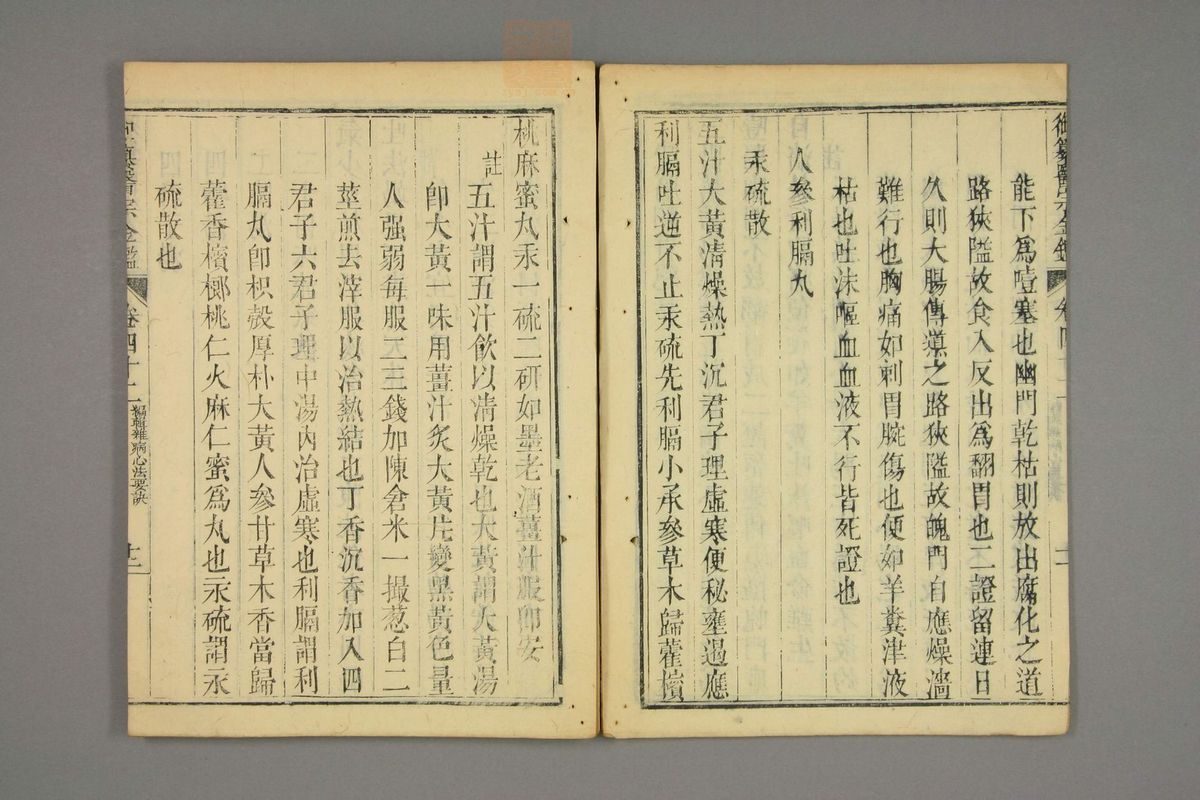 御纂醫宗金鑑 卷四十一
能下爲噎塞也幽門乾枯則放出腐化之道
路狹隘故食入反出爲翻胃也二證留連日
久則大腸傳導之路狹隘故魄門自應燥濇
難行也胸痛如刺胃脘傷也便如羊糞津液
枯也吐沫嘔血血液不行皆死證也
人參利膈丸
汞硫散
五汁大黃清燥熱丁沉君子理虛寒便秘壅遏應
利膈吐逆不止汞硫先利膈小承參草木歸藿檳
桃麻蜜丸汞一硫二研如墨老酒薑汁服卽安
註五汁謂五汁飲以清燥乾也大黃謂大黃湯
卽大黃一味用薑汁炙大黃片變黑黃色量
人强弱每服二三錢加陳倉米一撮葱白二
莖煎去滓服以治熱結也丁香沉香加入四
君子六君子理中湯內治虛寒也利膈謂利
膈丸卽枳殼厚朴大黃人參甘草木香當歸
藿香檳榔桃仁火麻仁蜜爲丸也汞硫謂汞
硫散也
御纂醫宗金鑑 卷四十一 編輯雜病心法要訣 十二